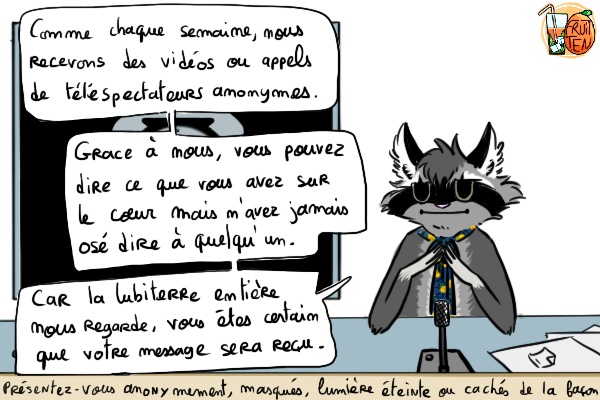 Comme chaque semaine, nous
recevons des vidéos ou appels
de téléspectateurs anonymes.
Grace à nous, vous pouvez
dire ce que vous avez sur
le cœur mais n'avez jamais
osé dire à quelqu'un.
Car la lubiterre entière
nous regarde, vous êtes certain
que votre message sera reçu.
Présentez-vous anonymement, masqués, lumière éteinte ou cachés de la façon
FRUIT
TEA